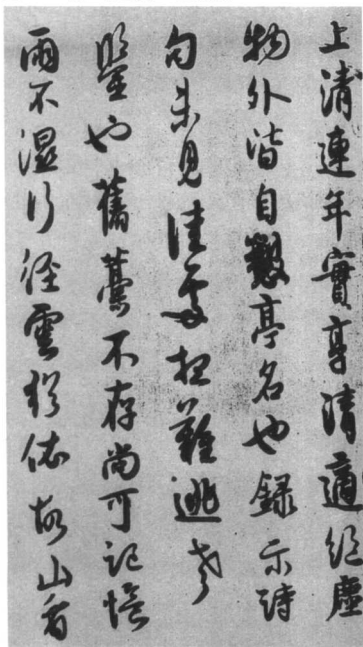 上清連年實享清適
物外皆自亭名也録示詩
句未見佳處想難逃老
鑒也舊藁不存尚可記憶
雨不濕行徑雲猶依故山者